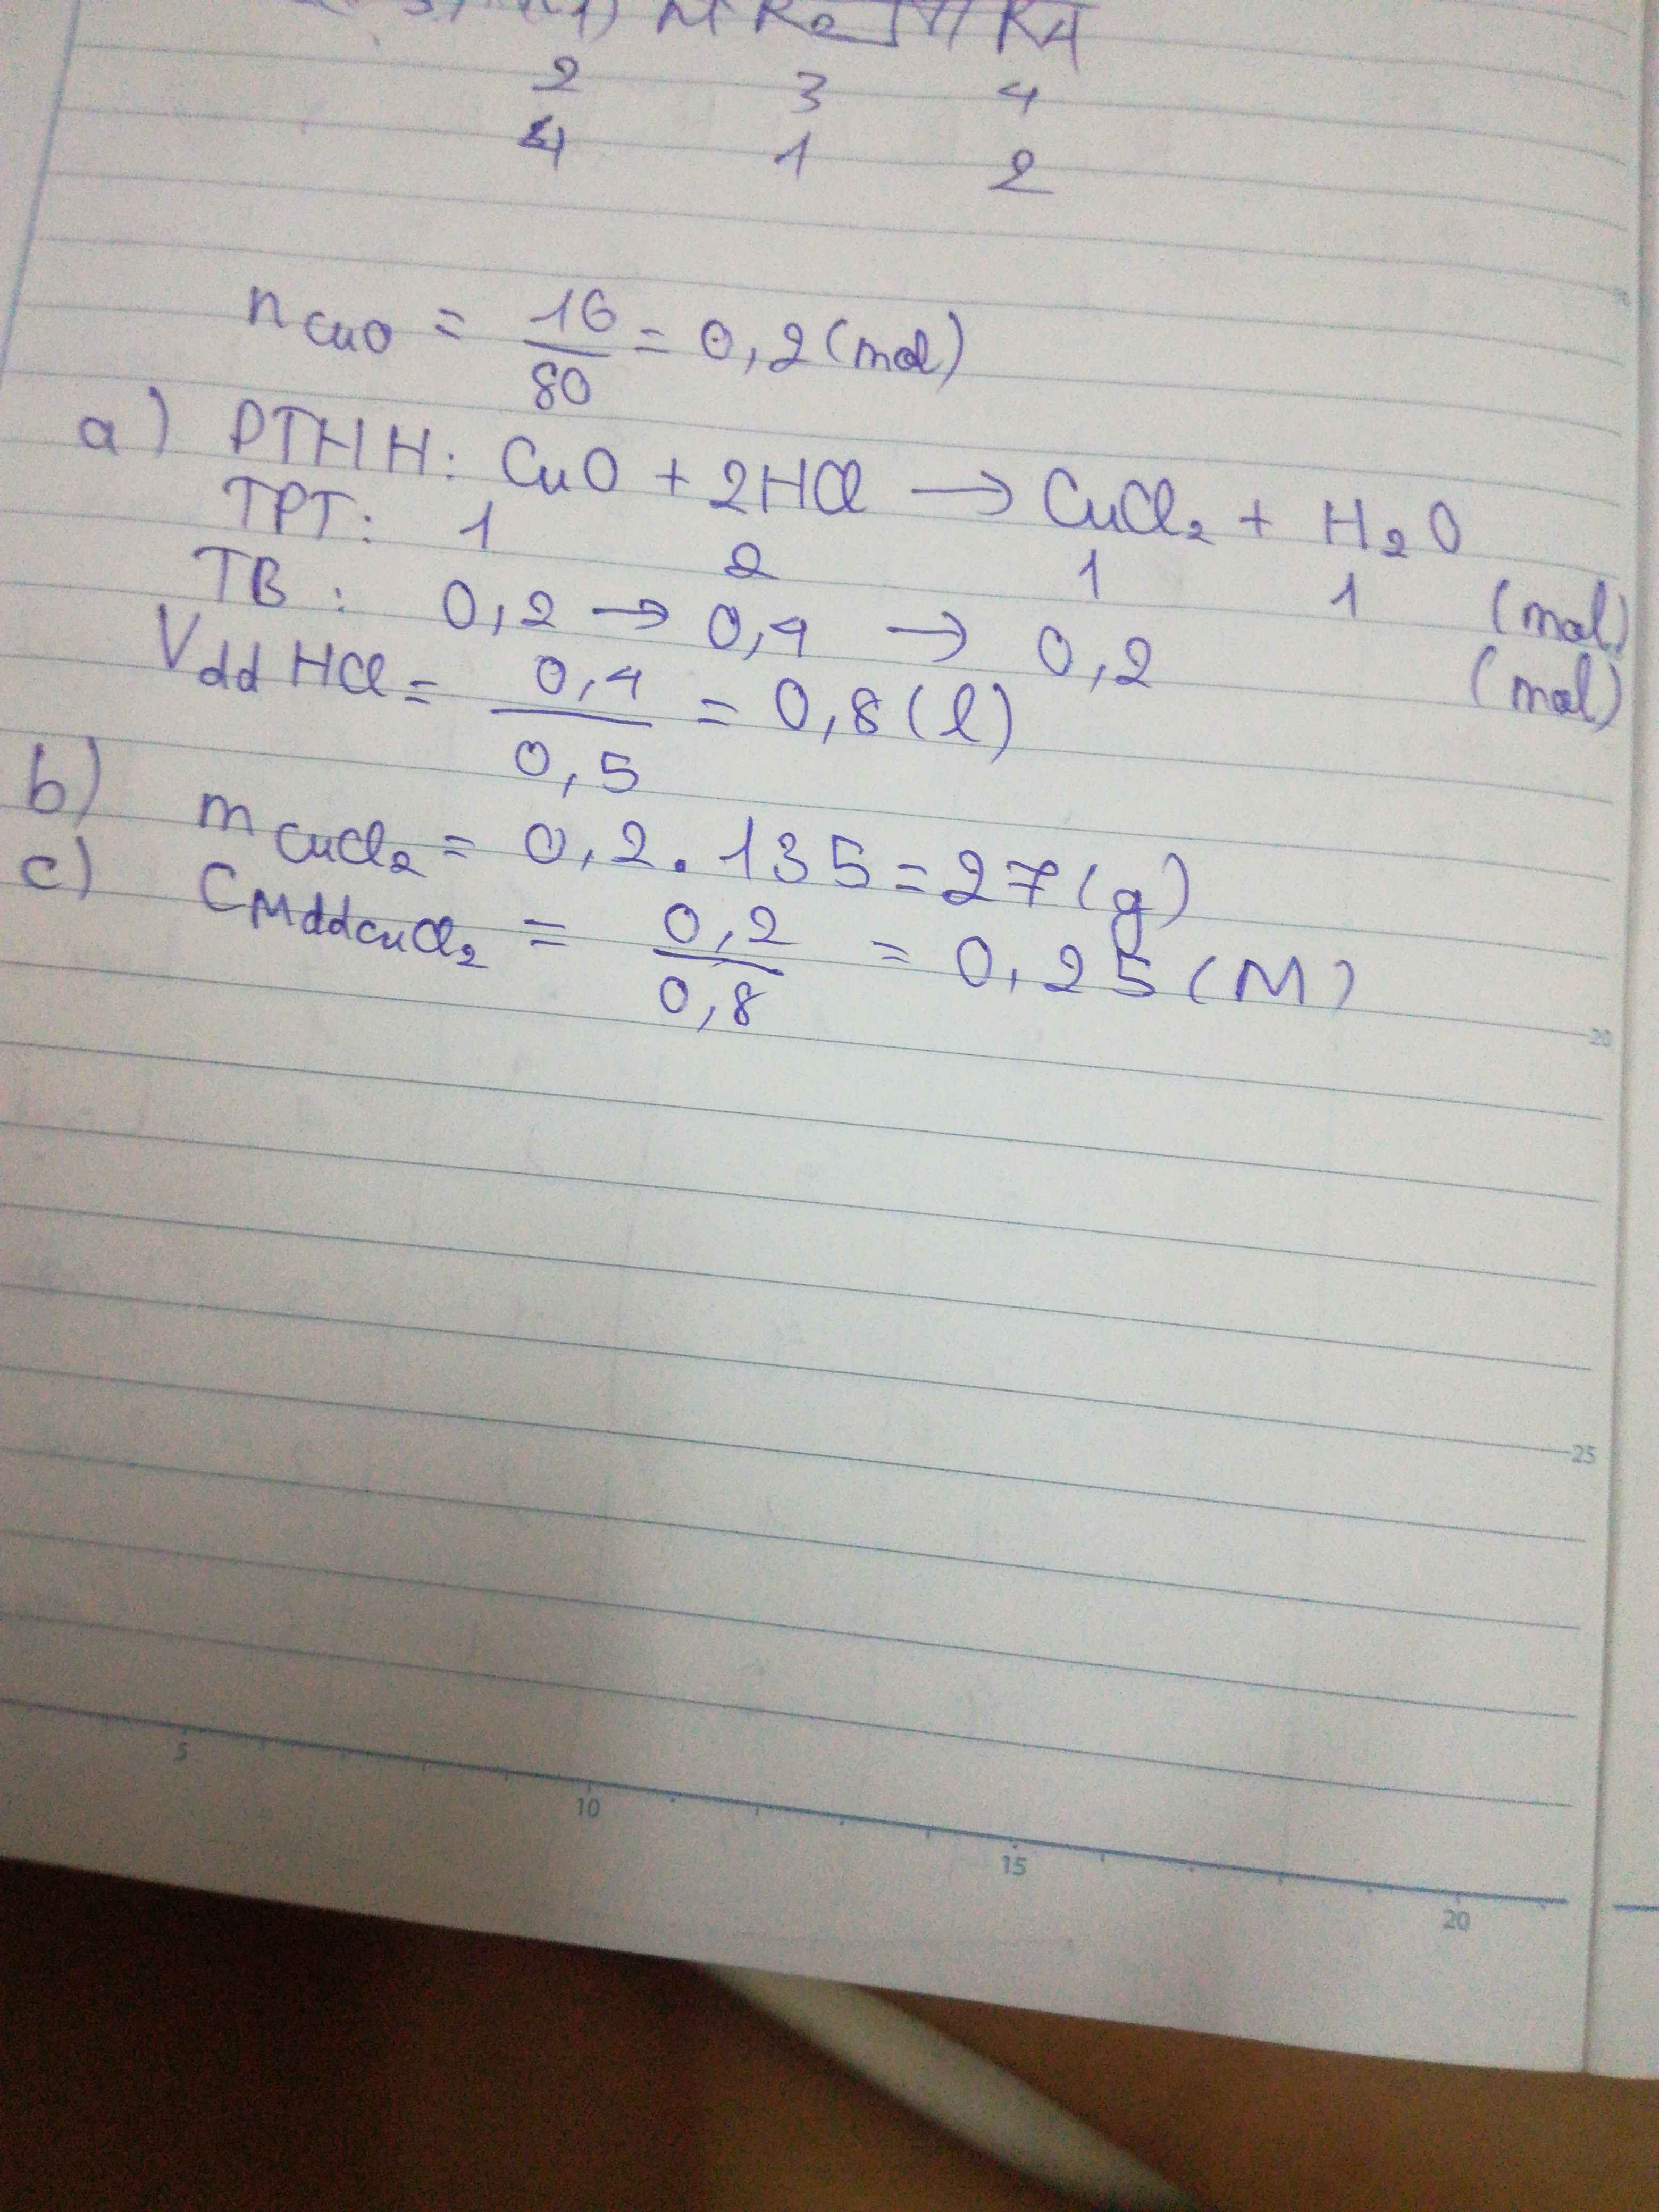 2 3 4
4 1 2
n CuO = 16/80 = 0,2 (mol)
a) PTHH: CuO + 2HCl → CuCl₂ + H₂O
TPT: 1 2 1 1 (mol)
TB: 0,2 → 0,4 → 0,2 (mol)
Vdd HCl = 0,4/0,5 = 0,8 (l)
b) mCuCl₂ = 0,2.135 = 27 (g)
c) CMddCuCl₂ = 0,2/0,8 = 0,25 (M)
20
25
5 10 15 20